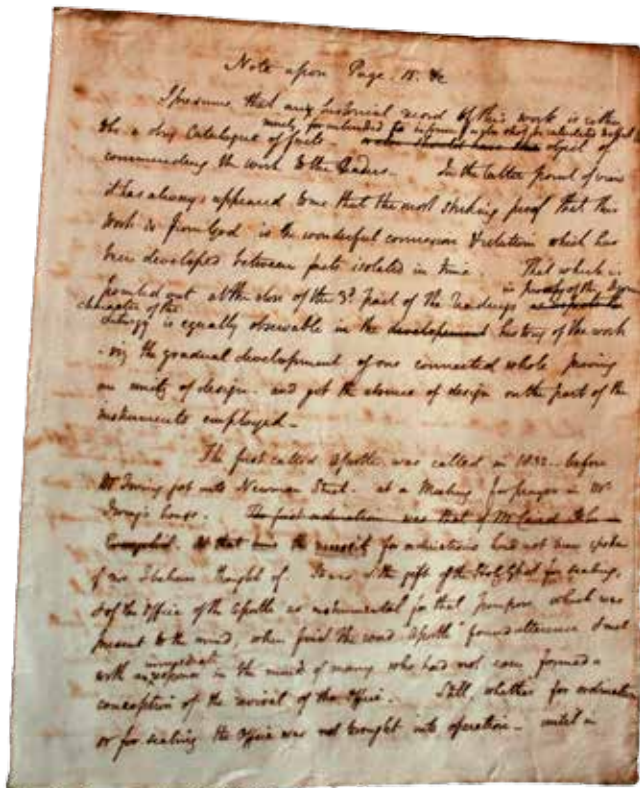 Note upon Page 15. &c
I presume that any historical record of this work is rather
merely for intended to inform,
the a dry Catalogue of facts. object of
commending the work to the Readers. In the latter point of view
it has always appeared to me that the most striking proof that this
work is from God is the wonderful connexion & relation which has
been developed between facts isolated in time. That which is
in proof of the
pointed out at the close of the 3d. part of the Readings
character of the
liturgy is equally observable in the development history of the work
- viz the gradual development of one connected whole proving
an unity of design - and yet the absence of design on the part of the
instruments employed -
The first called Apostle was called in 1832 - before
Mr Irving got into Newman Street - at a Meeting for prayer in Mr
Irving's house. The first ordination was that of Mr Caird
Evangelist. At that the for ordinations had not been spoken
of nor I believe thought of. It was the gift of the Holy Ghost for sealing,
& of the Office of the Apostle as instrumental for that purpose, which was
present to the mind, when first the word Apostle found utterance & met
immediate
with an response in the mind of many who had not even formed a
conception of the revival of the Office. Still, whether for ordination
or for sealing the Office was not brought into operation - until a